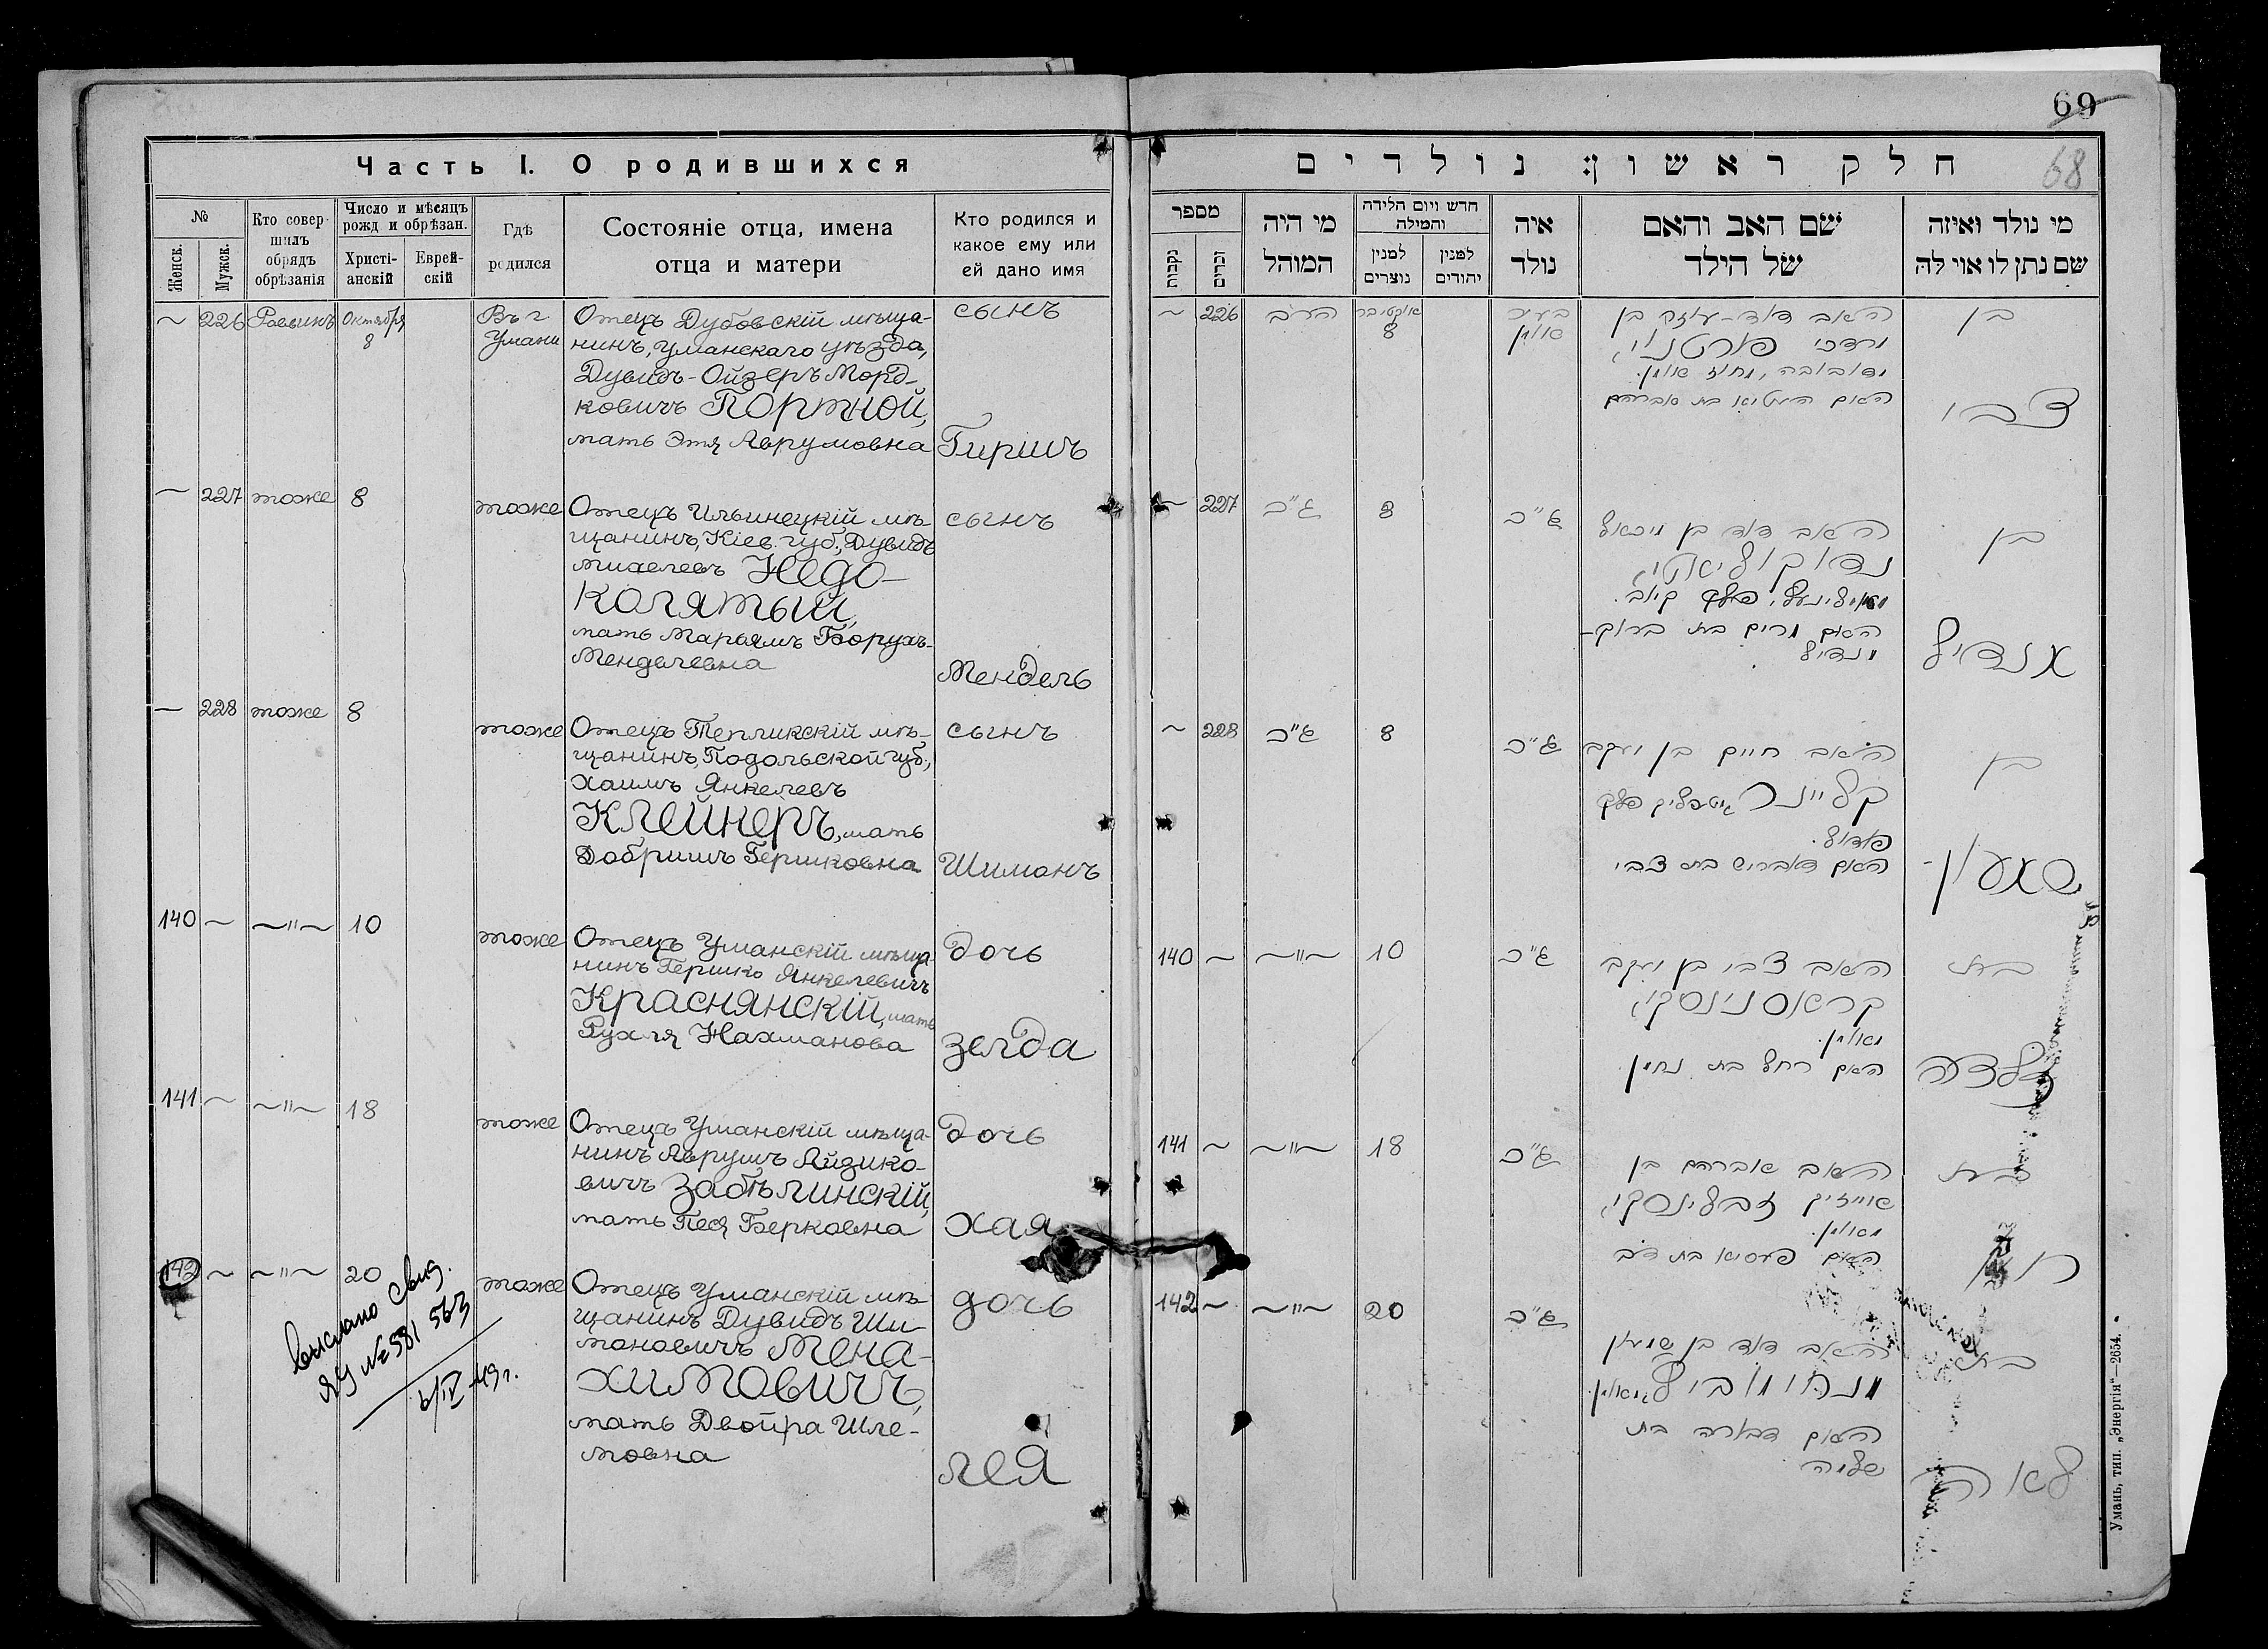 69
68
Часть I. О родившихся
№
Женск.
Мужск.
Кто совер-
шилъ
обрядъ
обрѣзанія
Число и мѣсяцъ
рожд и обрѣзан.
Христі-
анскій
Еврей-
скій
Гдѣ
родился
Состояніе отца, имена
отца и матери
Кто родился и
какое ему или
ей дано имя
~ 226 Раввинъ Октября
8
Въ г
Умани
Отецъ Дубовскій мѣща-
нинъ, Уманскаго уѣзда,
Дувидъ-Ойзеръ Морд-
ковичъ Портной,
мать Этя Аврумовна
сынъ
Гиршъ
~ 227 тоже 8
тоже
Отецъ Ильинецкій мѣ-
щанинъ, Кіев. губ., Дувидъ
Михелевъ Недо-
колятый,
мать Марьямъ Борухъ-
Менделевна
сынъ
Мендель
— 228 тоже 8
тоже
Отецъ Тепликскій мѣ-
щанинъ, Подольской губ.,
Хаимъ Янкелевъ
Клейнеръ, мать
Добришъ Гершковна
сынъ
Шимонъ
140 ~ ~"~ 10
тоже
Отецъ Уманскій мѣща-
нинъ Гершко Янкелевичъ
Краснянскій, мать
Рухля Нахманова
дочь
Зелда
141 ~ ~"~ 18
тоже
Отецъ Уманскій мѣща-
нинъ Аврумъ Айзико-
вичъ Забѣлинскій,
мать Песя Берковна
дочь
Хая
142 ~ ~"~ 20
тоже
Отецъ Уманскій мѣ-
щанинъ Дувидъ Ши-
моновичъ Мена-
химовичъ,
мать Двойра Шле-
мовна
дочь
Лея
Выслано свид.
ЯУ № 581 563
6/IV-49 г.
חלק ראשון: נולדים
מספר
נקבות
זכרים
מי היה
המוהל
חדש ויום הלידה
והמילה
למנין
נוצרים
למנין
יהודים
איה
נולד
שם האב והאם
של הילד
מי נולד ואיזה
שם נתן לו או לה
~ 226 הרב אוקטיבר
8
בעיר
אומן
האב דוד-עוזר בן
מרדכי פורטנוי,
מדובובה, מחוז אומן.
בן
צבי
~ 227 ג"כ 8
ג"כ
האב דוד בן מיכאל
האם מרים בת ברוך-
מנדיל
בן
מנדיל
~ 228 ג"כ 8
ג"כ
האב חיים בן יעקב
קליינר מטפליק פלך
פאדול.
האם דאבריש בת צבי
בן
שמעון
140 ~ ~"~ 10
ג"כ
האב צבי בן יעקב
קראסנינסקי,
מאומן.
האם רחל בת נחמן
בת
זלדה
141 ~ ~"~ 18
ג"כ
האב אברהם בן
אייזיק זבלינסקי,
מאומן.
האם פעסיא בת דוב
בת
חיה
142 ~ ~"~ 20
ג"כ
האב דוד בן שמעון
מאומן.
האם דבורה בת
שלמה
בת
לאה
Умань, тип. „Энергія"—2654.